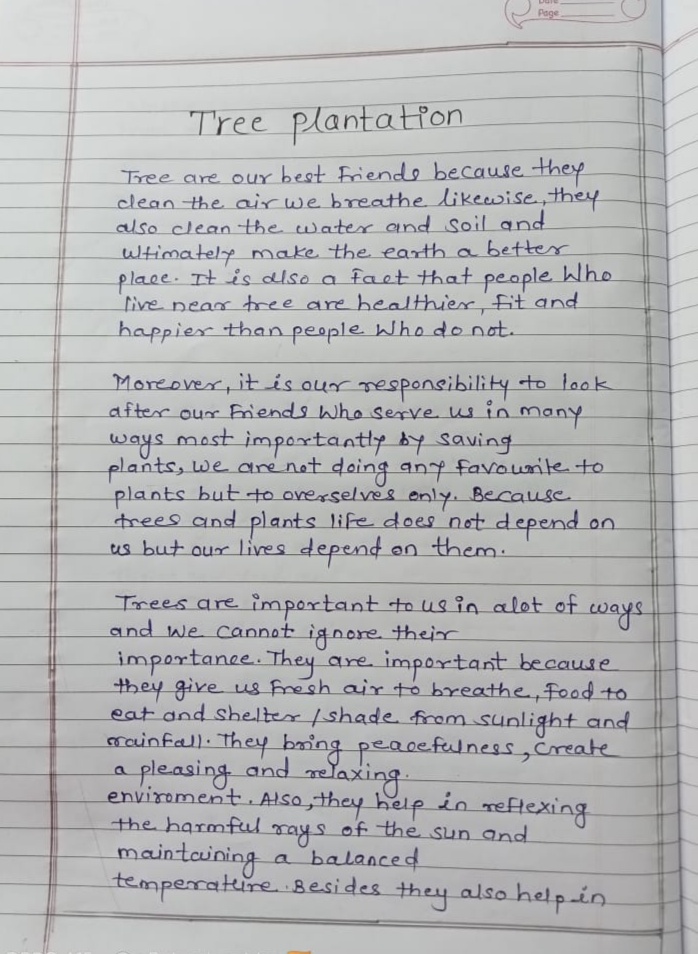 Page
Tree plantation
Tree are our best Friends because they
clean the air we breathe likewise, they
also clean the water and soil and
ultimately make the earth a better
place. It is also a fact that people Who
live near tree are healthier, fit and
happier than people Who do not.
Moreover, it is our responsibility to look
after our Friends Who serve us in many
ways most importantly by saving
plants, we are not doing any favourite to
plants but to overselves only. Because
trees and plants life does not depend on
us but our lives depend on them.
Trees are important to us in alot of ways
and we cannot ignore their
importance. They are important because
they give us fresh air to breathe, food to
eat and shelter / shade from sunlight and
rainfall. They bring peacefulness, create
a pleasing and relaxing.
enviroment. Also, they help in reflexing
the harmful rays of the sun and
maintaining a balanced
temperature. Besides they also help in